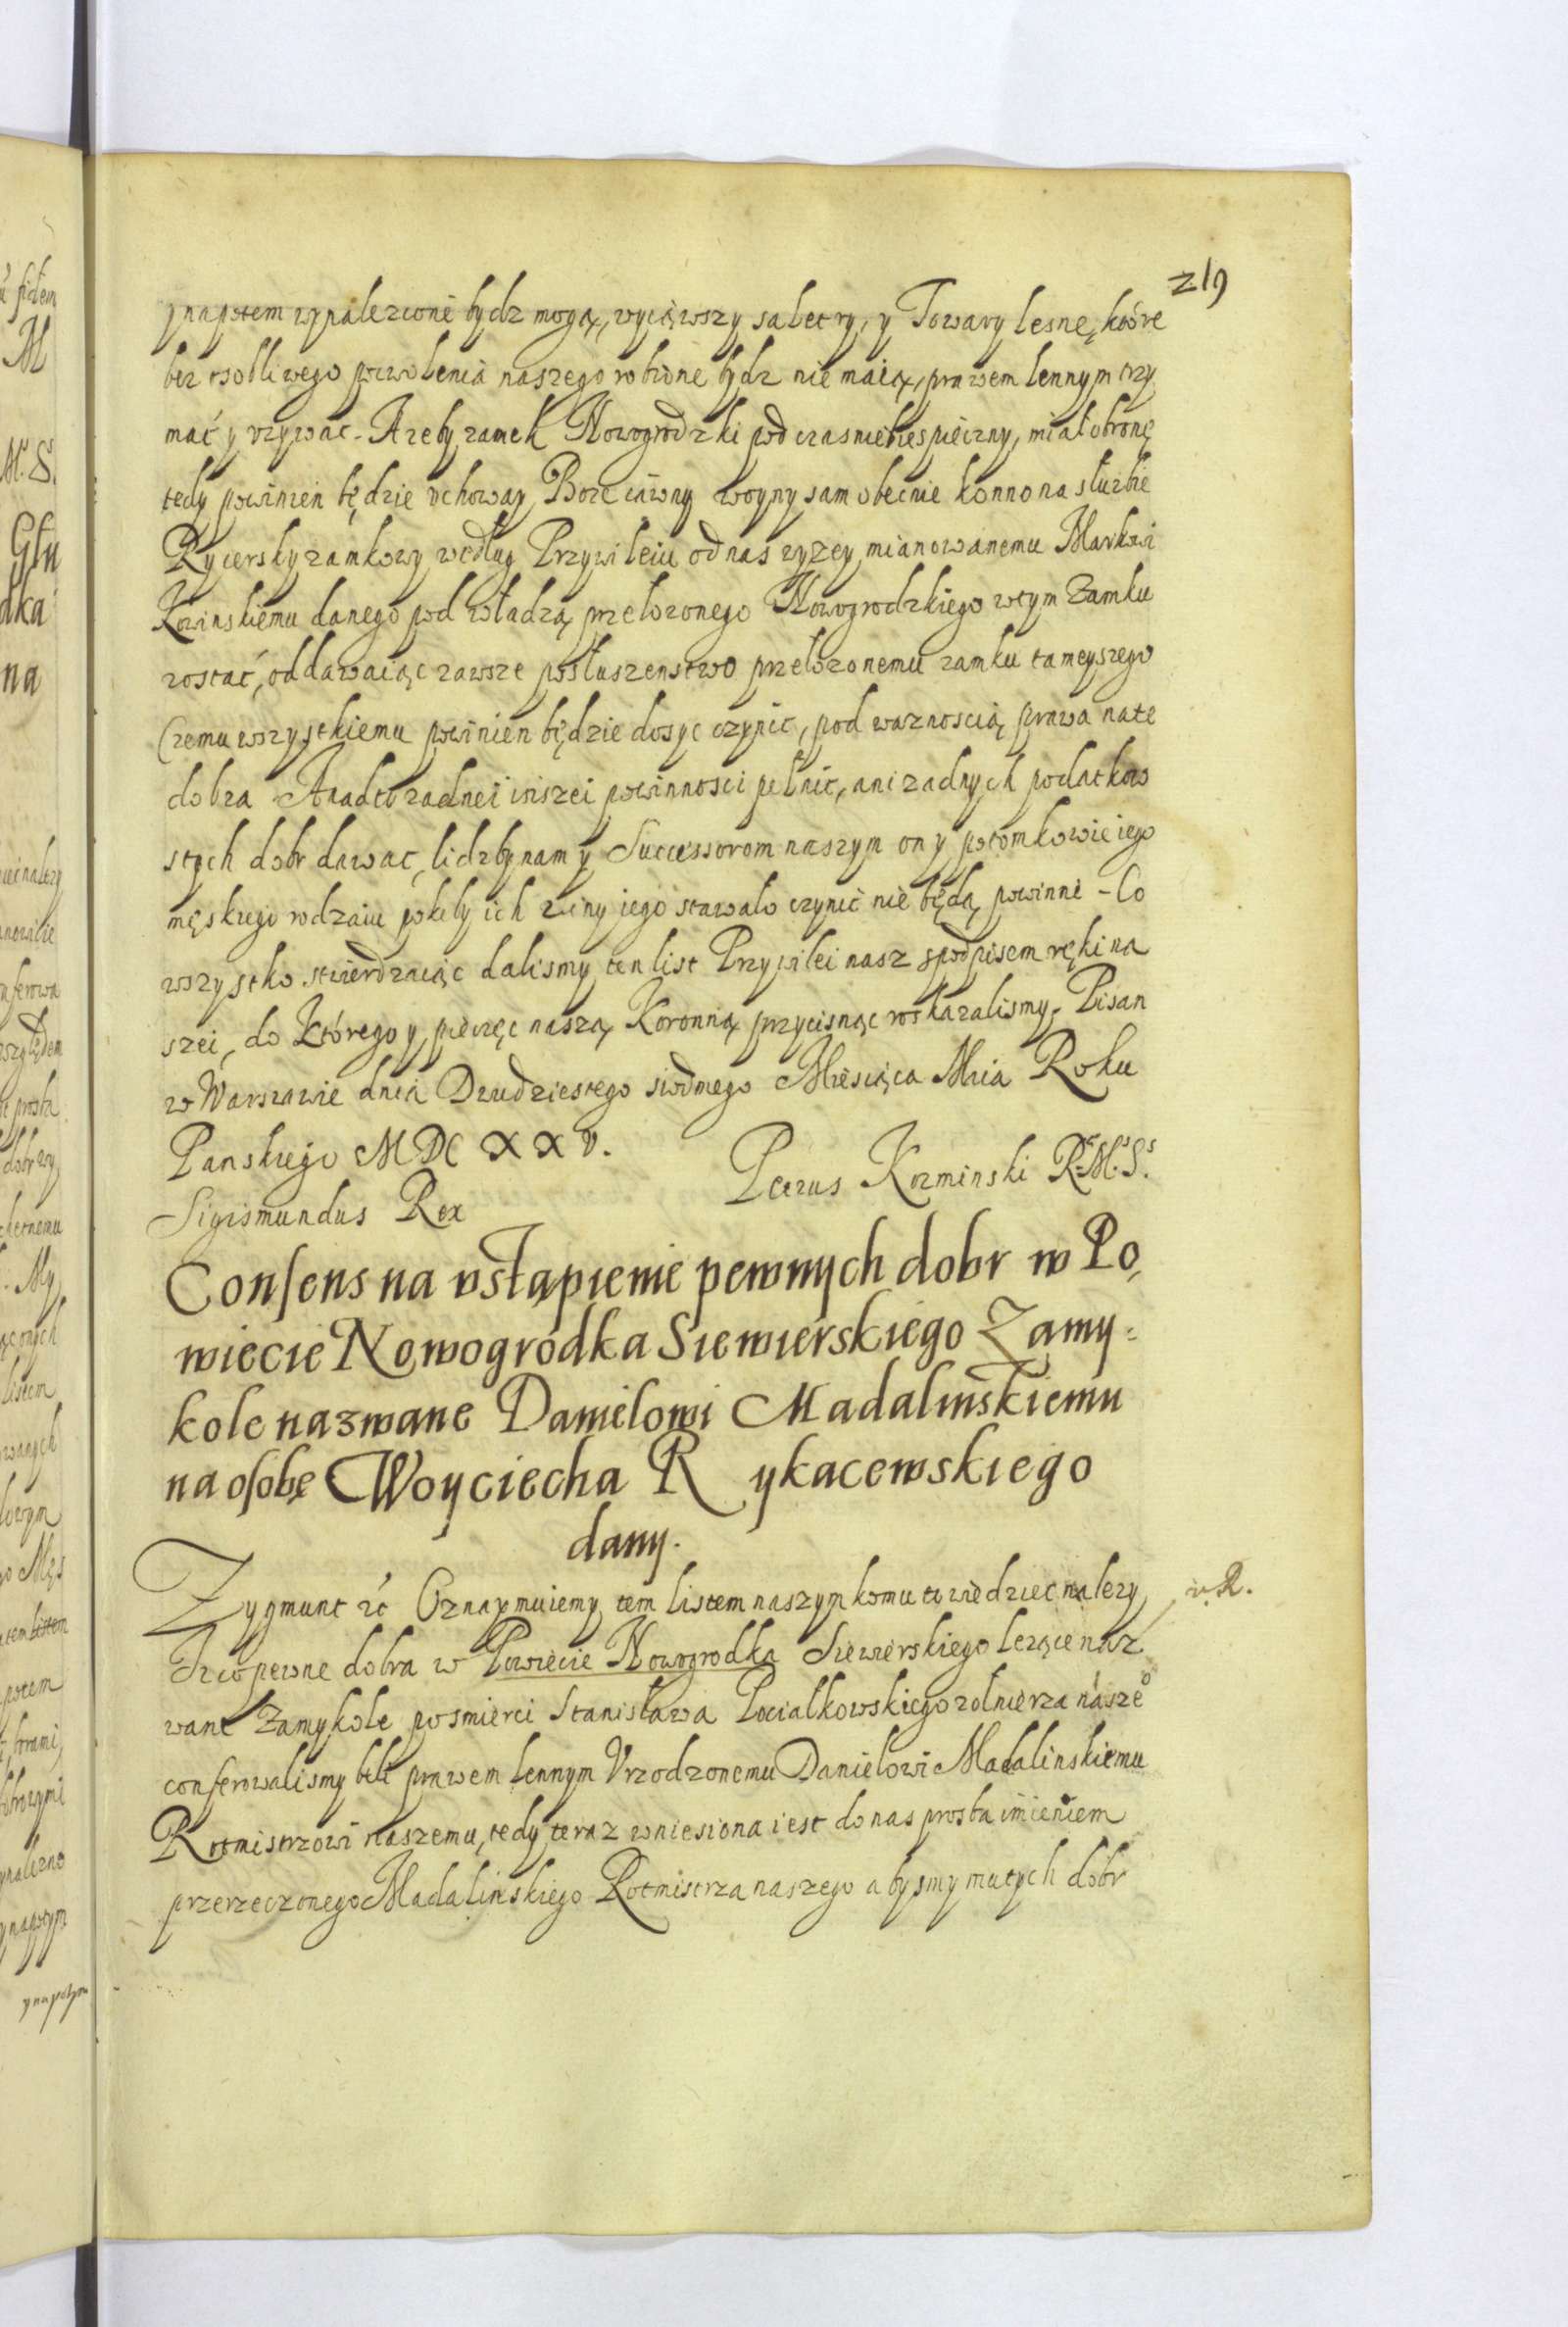 219
ynapotem wynalezione bydz mogą, wyciąwszy saletry, y Towary lesne, które
bez osobliwego pozwolenia naszego robione bydz nie maią, prawem lennym trzy
mać y vzywac. Azeby zamek Nowogrodzki pod czas niebespieczny, miał obronę
tedy powinien będzie vchoway Boze iawny woyny sam obecnie konno na służbie
Rycersky zamkowy według Przywileiu od nas wyzey mianowanemu Markowi
Kowinskiemu danego pod władzą przelozonego Nowogrodzkiego wtym Zamku
zostać, oddawaiąc zawsze posłuszenstwo przelozonemu zamku tameyszego
Czemu wszystkiemu powinien będzie dosyc czynic, pod waznoscią prawa na te
dobra A nadto zadnei inszei powinnosci pełnic, ani zadnych podatkow
stych dobr dawac, lidzby nam y Successorom naszym on y potomkowie iego
męskiego rodzaiu pokily ich Liny jego stawalo czynic nie będą powinni - Co
wszystko stwierdzaiąc dalismy ten list Przywilei nasz spodpisem ręki na
szei, do Którego y pieczęc naszą Koronną przycisnąc roskazalismy. Pisan
w Warszawie dnia Dwudziestego siodmego Miesiąca Maia Roku
Panskiego MDCXXV.
Petrus Kozminski R. M. S.
Sigismundus Rex
Consens na vstąpienie pewnych dobr w Po,
wiecie Nowogródka Siewierskiego Zamy=
kole nazwane Danielowi Madalińskiemu
na osobę Woyciecha Rykacewskiego
dany.
Zygmunt rć Oznaymuiemy tem listem naszym komu to wiedziec nalezy
v. R.
Iz co pewne dobra w Powiecie Nowogrodka Siewierskiego lezące naz
wane Zamykole po smierci Stanisława Pocialkowskiego zolnierza nasze⁰
conferowalismy beli prawem lennym Vrodzonemu Danielowi Madalinskiemu
Rotmistrzowi naszemu, tedy teraz wniesiona iest do nas prosba imieniem
przerzeczonego Madalinskiego Rotmistrza naszego abysmy mu tych dobr